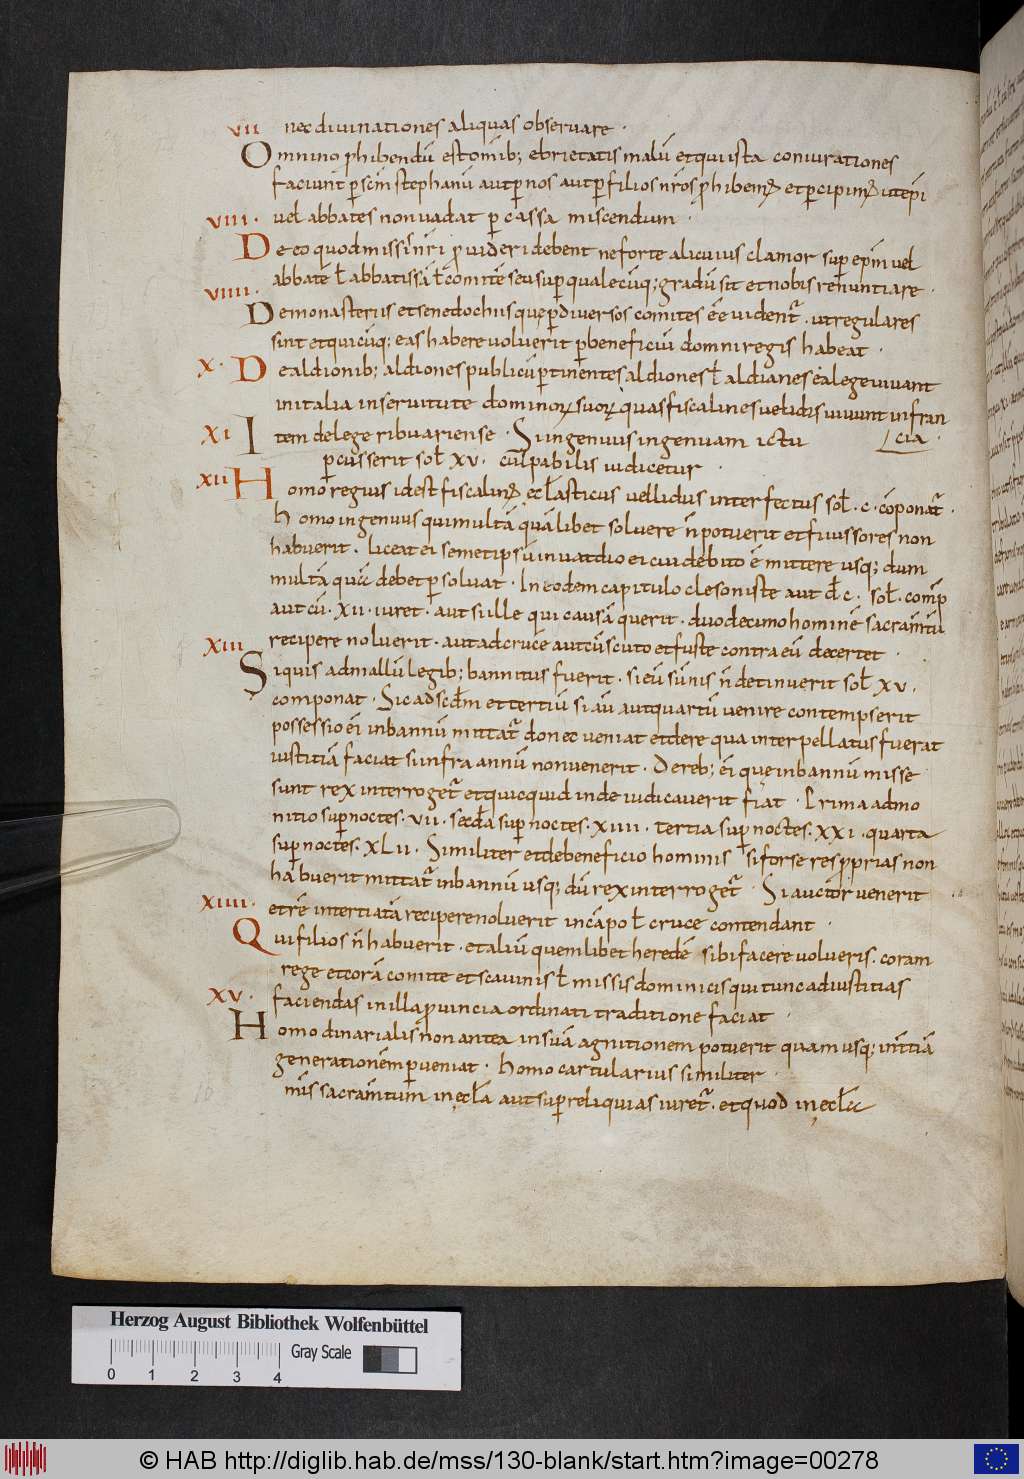 VII nec divinationes aliquas observare ·
Omnino ꝓhibendū est om̄ib; ebrietatis malū et qui ista coniurationes
faciunt ꝑ sc̄m stephanū aut ꝑ nos aut ꝑ filios nr̄os ꝓhibem᷒ et p̄cipim᷒ ut ep̄i
VIII · vel abbates non vadat ꝑ cassa miscendum ·
De eo quod missi nr̄i ꝓvideri debent ne forte alicuius clamor suꝑ ep̄m vel
abbatē ł abbatissā ł comitē seu suꝑ qualecūq; gradū sit et nobis renuntiare ·
VIIII ·
De monasteriis et senedochiis que ꝑ diversos comites eē vident᷑ · ut regulares
sint et quicūq; eas habere voluerit ꝑ beneficiū domni regis habeat ·
X · De aldionib; aldiones publicū ꝑtinentes aldiones ł aldianes ea lege vivant
in italia in servitute dominoꝝ suoꝝ quas fiscaline s vel lidis vivunt in fran
XI Item de lege ribuariense · Si ingenuus ingenuam ictu cia ·
ꝑcusserit soł XV · culpabilis iudicetur ·
XII Homo regius id est fiscalin᷒ ecłasticus vel lidus interfectus soł · c · cōponat᷑ ·
Homo ingenuus qui multā quālibet solvere n̄ potuerit et fiiussores non
habuerit · liceat ei semetipsū in vatdio ei cui debito ē mittere usq; dum
multā quā debet ꝑsolvat · In eodem capitulo clesoniste aut đ c · soł · comp̄
aut cū · XII · iuret · aut si ille qui causā querit · duodecimo hominē sacram̄tū
recipere noluerit · aut ad crucē aut cū scuto et fuste contra eū decertet ·
XIII
Siquis ad mallū legib; bannitus fuerit · si eū sūnis n̄ detinuerit soł XV ·
componat · Sic ad scđm et tertiū si aū aut quartū venire contempserit
possessio ei in bannū mittat᷑ donec veniat et de re qua interpellatus fuerat
iustitiā faciat si infra annū non venerit · De reb; ei que in bannū misse
sunt rex interroget᷑ et quicquid inde iudicaverit fiat · Prima admo
nitio suꝑ noctes · VII · secđa suꝑ noctes · XIIII · tertia suꝑ noctes · XXI · quarta
suꝑ noctes · XLII · Similiter et de beneficio hominis si forse res ꝓprias non
habuerit mittat᷑ in bannū usq; dū rex interroget᷑ · Si auctor venerit
XIIII · et rē intertiatā recipere noluerit in cāpo ł cruce contendant ·
Qui filios n̄ habuerit · et aliū quemlibet heredē sibi facere volueris · coram
rege et corā comite et scavinis ł missis dominicis qui tunc ad iustitias
XV · faciendas in illa ꝓvincia ordinati traditione faciat ·
Homo dinarialis non antea in suā agnitionem potuerit quam usq; in t̄tiā
generationem ꝑveniat · Homo cartularius similiter ·
mīs sacram̄tum in ęcła aut suꝑ reliquias iuret᷑ · et quod in ęcła
Herzog August Bibliothek Wolfenbüttel
Gray Scale
0 1 2 3 4
© HAB http://diglib.hab.de/mss/130-blank/start.htm?image=00278